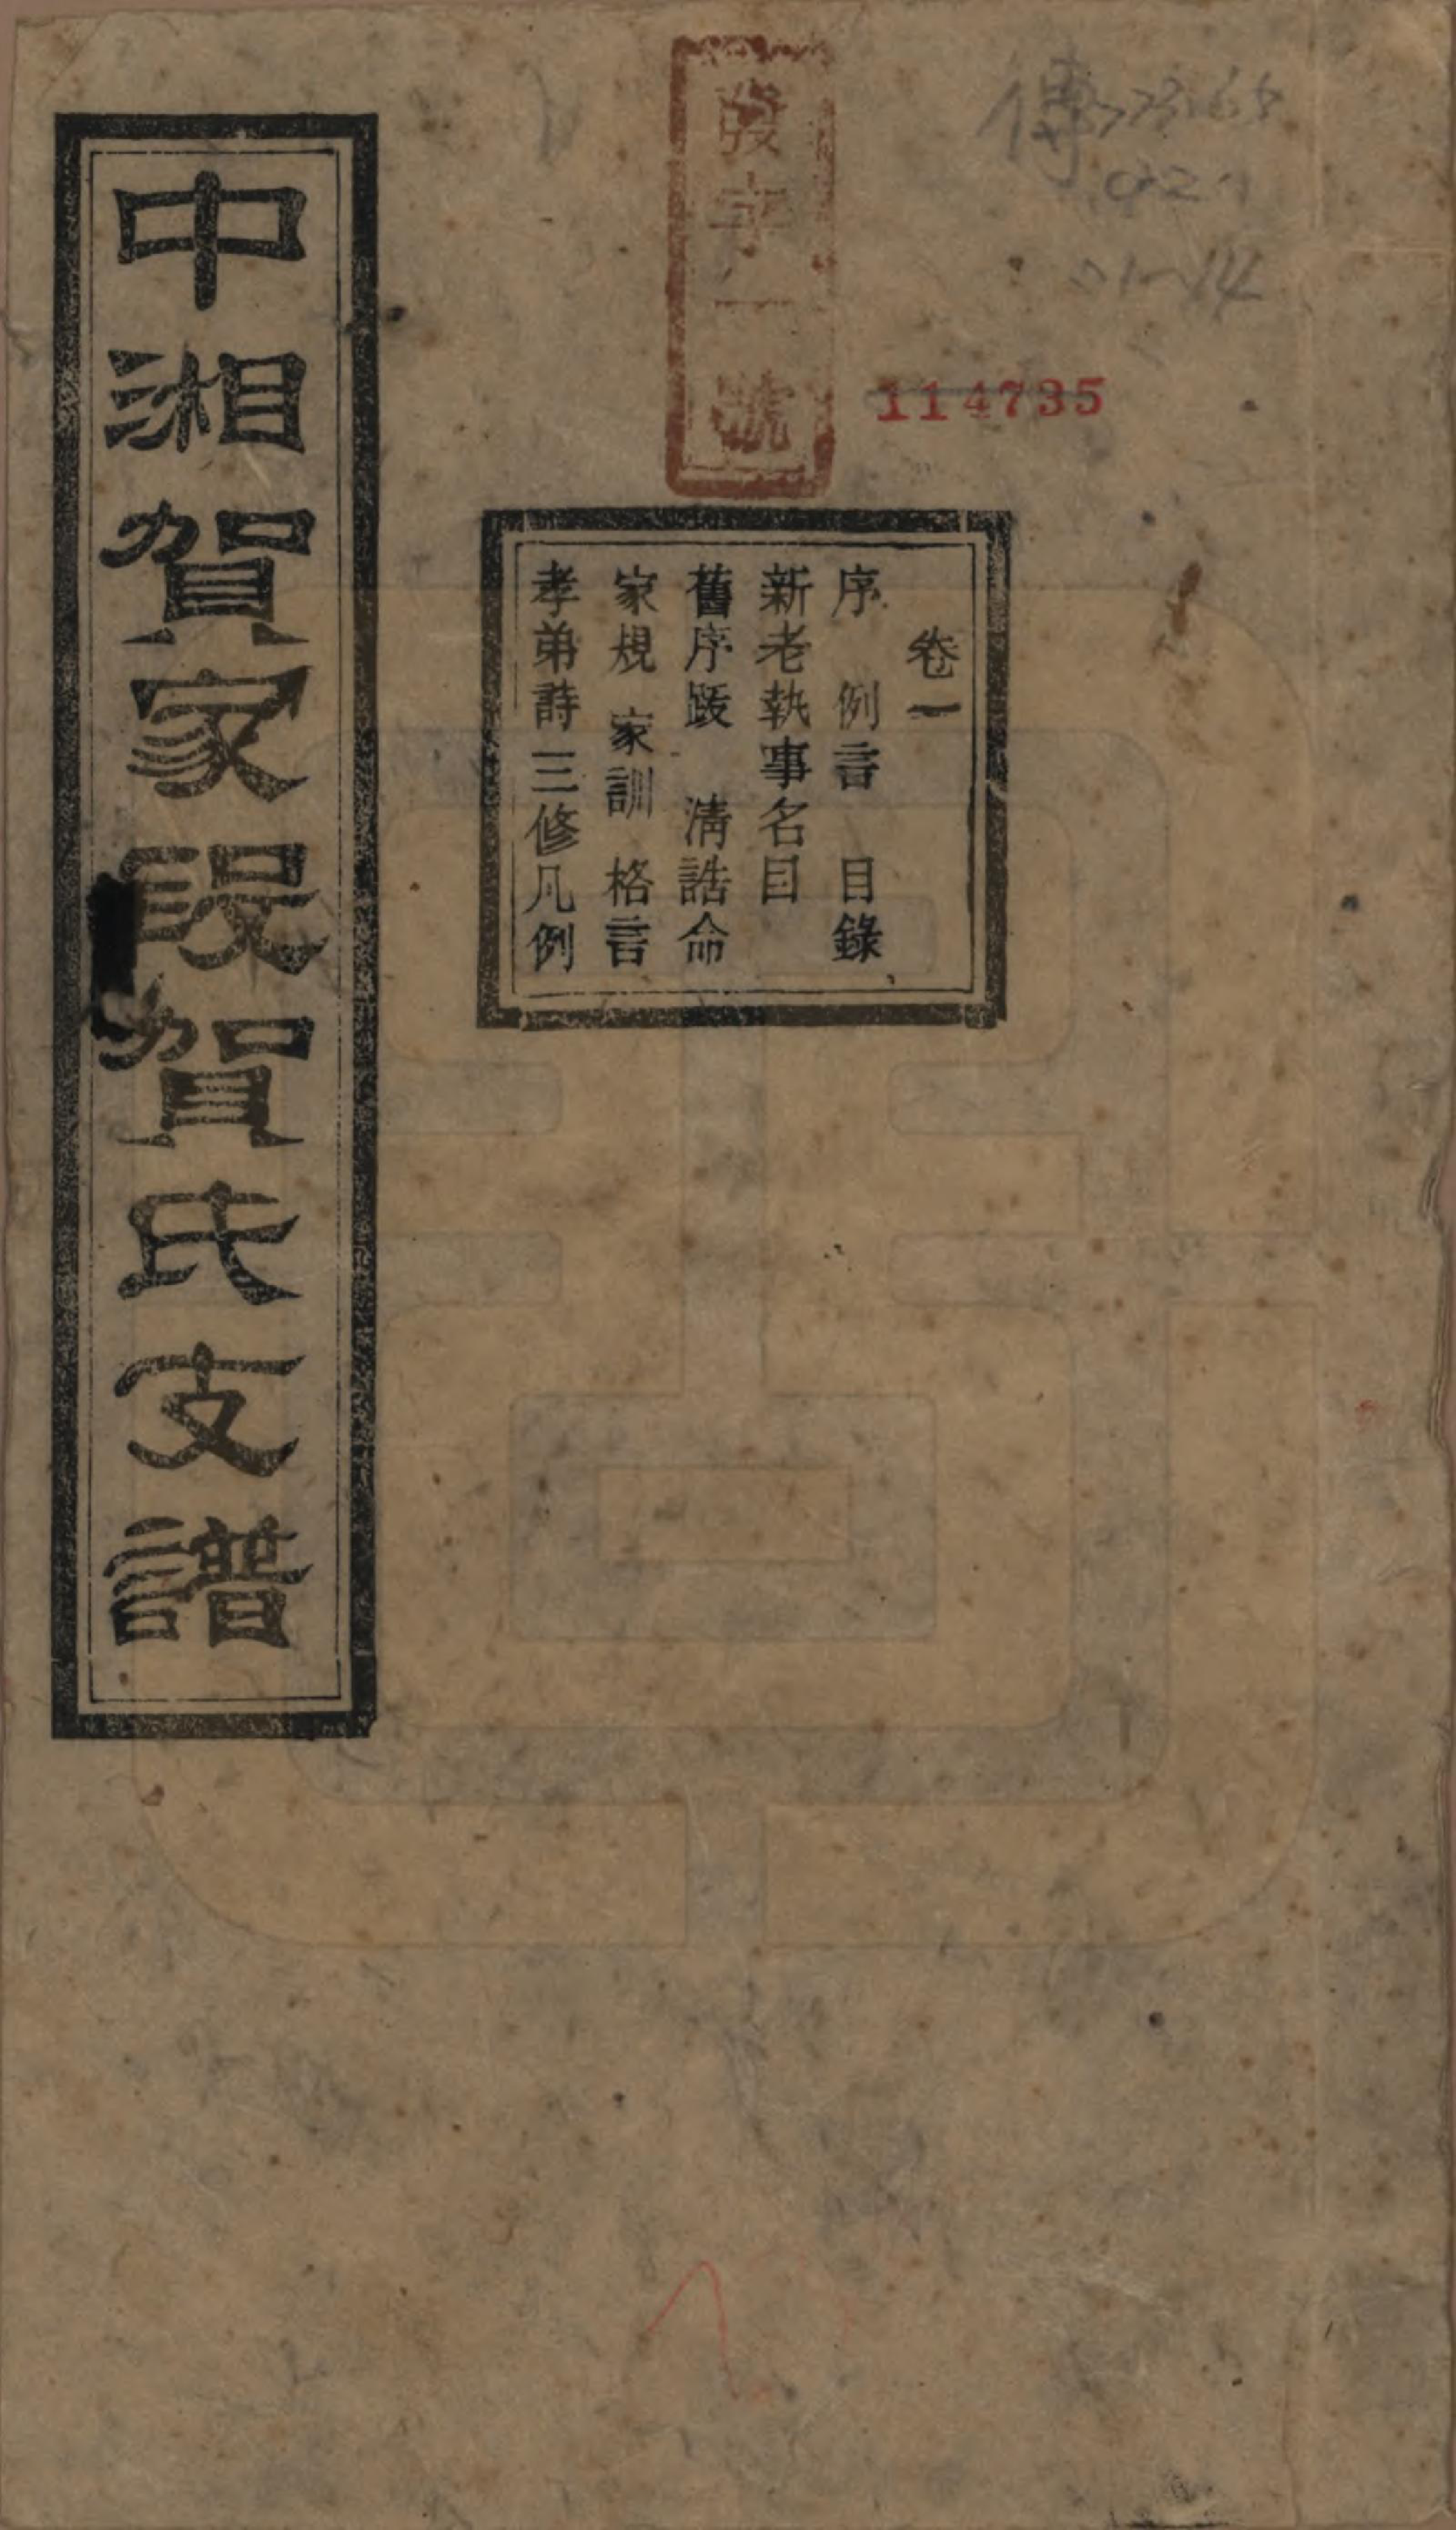 114735
卷一
序 例言 目錄
新老執事名目
舊序跋 清誥命
家規 家訓 格言
孝弟詩三修凡例
中湘賀家段賀氏支譜
字一號